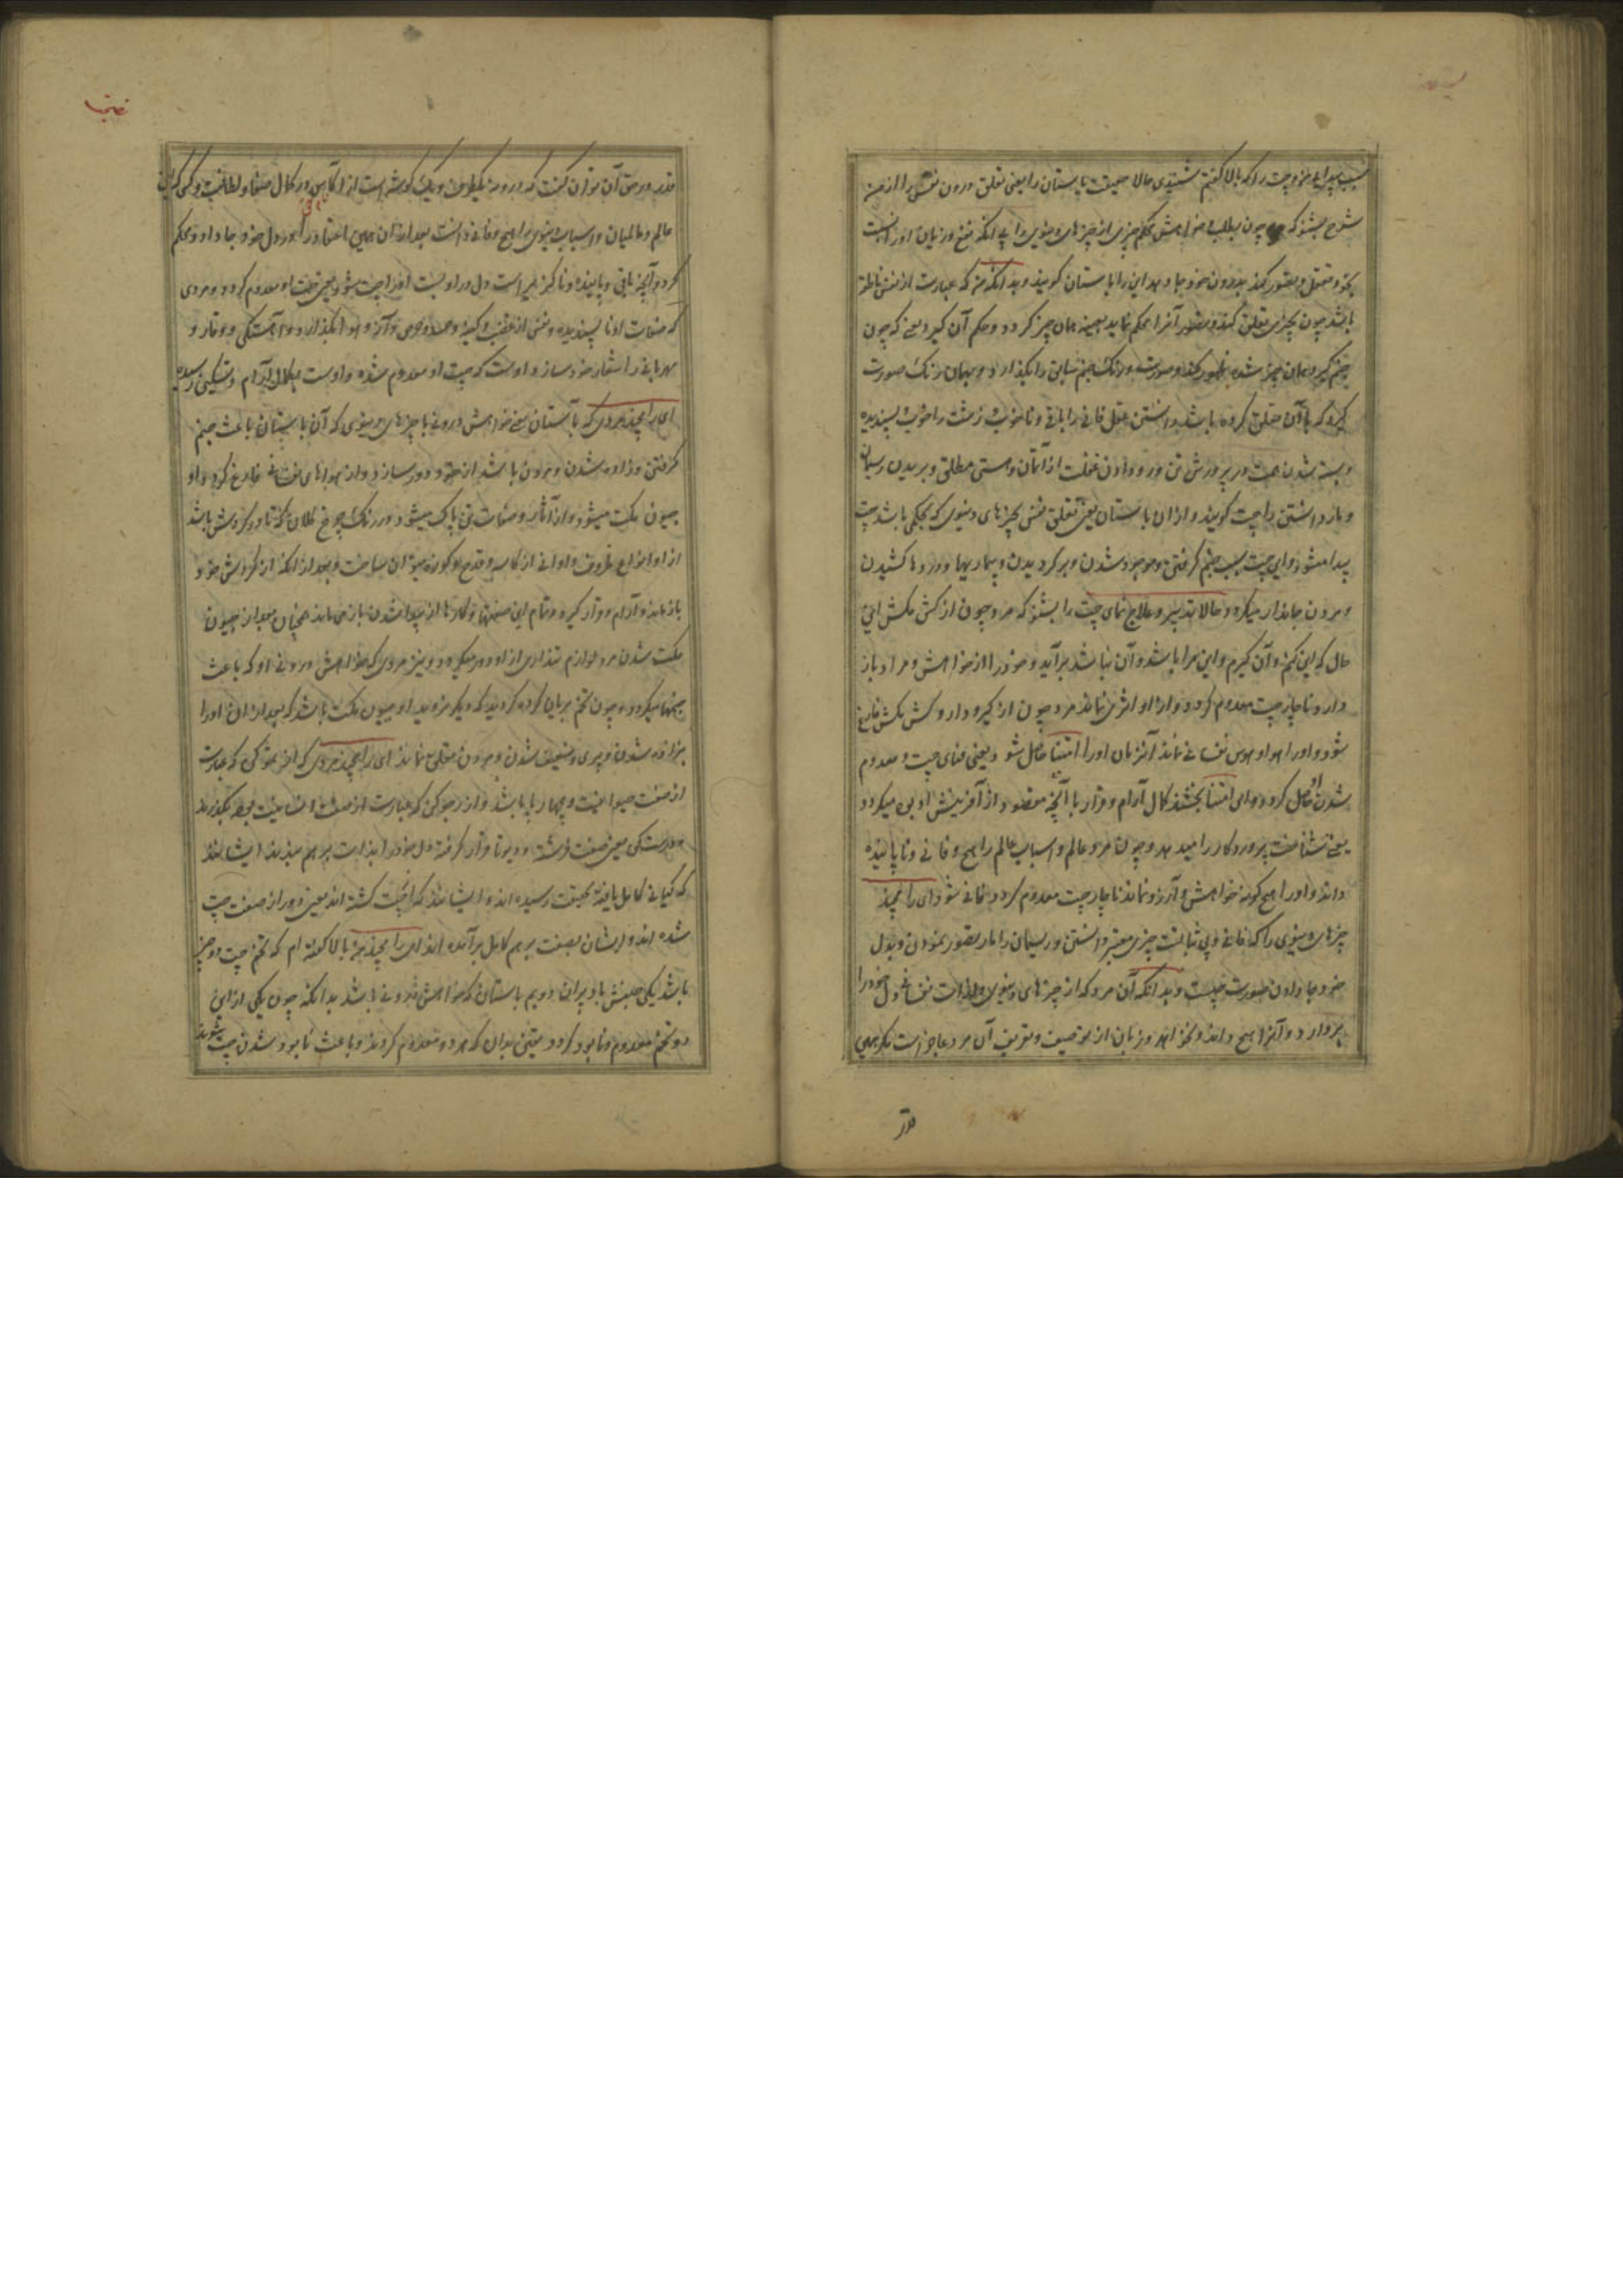 سبب پیدایی خود چت را که بالا گفتم شنیدی حالا حقیقت باستان را یعنی تعلق درون نفس را از من
شرح بشنو که چون بطلب خواهش محکم چیزی از چیزهای دنیوی را بی آنکه نفع و زیان او را نسبت
کند و تعقل و تصور کند بدرون خود جا دهد این را باستان گویند و بدانکه من که عبارت از نفس ناطقه
باشد چون بچیزی تعلق کند و تصور آنرا محکم نماید بعینه همان چیز گردد و حکم آن گیرد یعنی که چون
جنم گیرد همان چیز شده ظهور کند و صورت و رنگ جنم سابق را بگذارد و بهمان رنگ صورت
گیرد که با آن تعلق کرده باشد و دانستن عقل فانی را باقی و ناخوب و زشت را خوب و پسندیده
و بسته شدن همت در پرورش تن و رو دادن غفلت از آتمان و هستی مطلق و بریدن ریسمان
و باز داشتن را چت گویند و از آن باستان یعنی تعلق نفس بچیزهای دنیوی که بحکمی باشد چت
پیدا میشود و این چت سبب جنم گرفتن و موجود شدن و بر گردیدن و بیماریها و دردها کشیدن
و مردن جاندار میگردد حالا تدبیر و علاج فنای چت را بشنو که مرد چون از کش مکش این
حال که این کنم و آن گیرم و این مرا باشد و آن نباشد برآید و خود را از خواهش و مراد باز
دارد ناچار چت معدوم گردد و از او اثری نماند مرد چون از گیر و دار و کش مکش فارغ
شود و او را هوا و هوس نفسانی نماند آنزمان او را امنتا حاصل شود یعنی فنای چت و معدوم
شدن او حاصل گردد و این امنتا بخشنده کمال آرام و قرار با آنچه مقصود از آفرینش آدمی میگردد
یعنی شناخت پروردگار را میدهد و چون مرد عالم و اسباب عالم را هیچ و فانی و ناپاینده
داند و او را هیچ گونه خواهش و آرزو نماند ناچار چت معدوم گردد و فانی شود ای رامچند
چیزهای دنیوی را که فانی و بی ثباتست چیزی معتبر دانستن و ریسمان را مار تصور نمودن و بدل
خود جا دادن صورت چتست و بدانکه آن مرد که از چیزهای دنیوی و لذات نفسانی دل خود را
بردارد و آنرا هیچ داند و نخواهد زبان از توصیف و تعریف آن مرد عاجز است مگر همین
قدر
قدر در حق آن توان گفت که
عالم و عالمیان و اسباب دنیوی را هیچ و فانی دانست بعد از آن همین اعتقاد را در دل خود جا داد و محکم
کرد و آنچه باقی و پاینده و ناگزیر است دل در او بست او را چت شود یعنی چت او معدوم گردد و مردی
که صفات او ناپسندیده و نفس از غضب و کینه و حسد و حرص و آز و هوا بگذارد و آهستگی و وقار و
مهربانی را شعار خود سازد و اوست که چت او معدوم شده و اوست بکمال آرام و تسکین رسیده
ای رامچند مردی که باستان یعنی خواهش درونی با چیزهای دنیوی که آن باستان باعث جنم
گرفتن و زاده شدن و مردن باشد از خود دور سازد و از هواهای نفسانی فارغ گردد او
جیون مکت میشود و از آثار و صفات تن پاک میشود و در رنگ چرخ کلال که تا در گردش باشد
از او انواع ظروف و اوانی از کاسه و قدح و کوزه میتوان ساخت و بعد از آنکه از گردش خود
باز ماند و آرام و قرار گیرد و تمام این صفتها و کارها از پیدا شدن باز می ماند همچنان بعد از جیون
مکت شدن مرد لوازم تن داری از او دور میگردد و نیز مردی که خواهش درونی او که باعث
جنمها میگردد چون تخم بریان کرده گردید که دیگر نروید او جیون مکت باشد که بعد از آن او را
بزاده شدن و پیری و ضعیف شدن و مردن تعلق نماند ای رامچند مردی که از تموگن که عبارت
از صفت حیوانیت و چهار پا باشد و از رجوگن که عبارت از صفت انسانیت بود بگذرد
و در ستگن یعنی صفت فرشته و دیوتا قرار گرفته دل خود را بذات برهم میبرند ایشانند
که گیانی کامل یافته بحقیقت رسیده اند و ایشانند که اچت گشته اند یعنی دور از صفت چت
شده اند و ایشان بصفت برهم کامل برآمده اند ای رامچند چه بالا گفته ام که تخم چت دو چیز
باشد یکی جنبش باد پران دویم باستان که خواهش درونی باشد بدانکه چون یکی از این
دو تخم معدوم و نابود گردد یقین بدان که هر دو معدوم گردند و باعث نابود شدن چت شوند